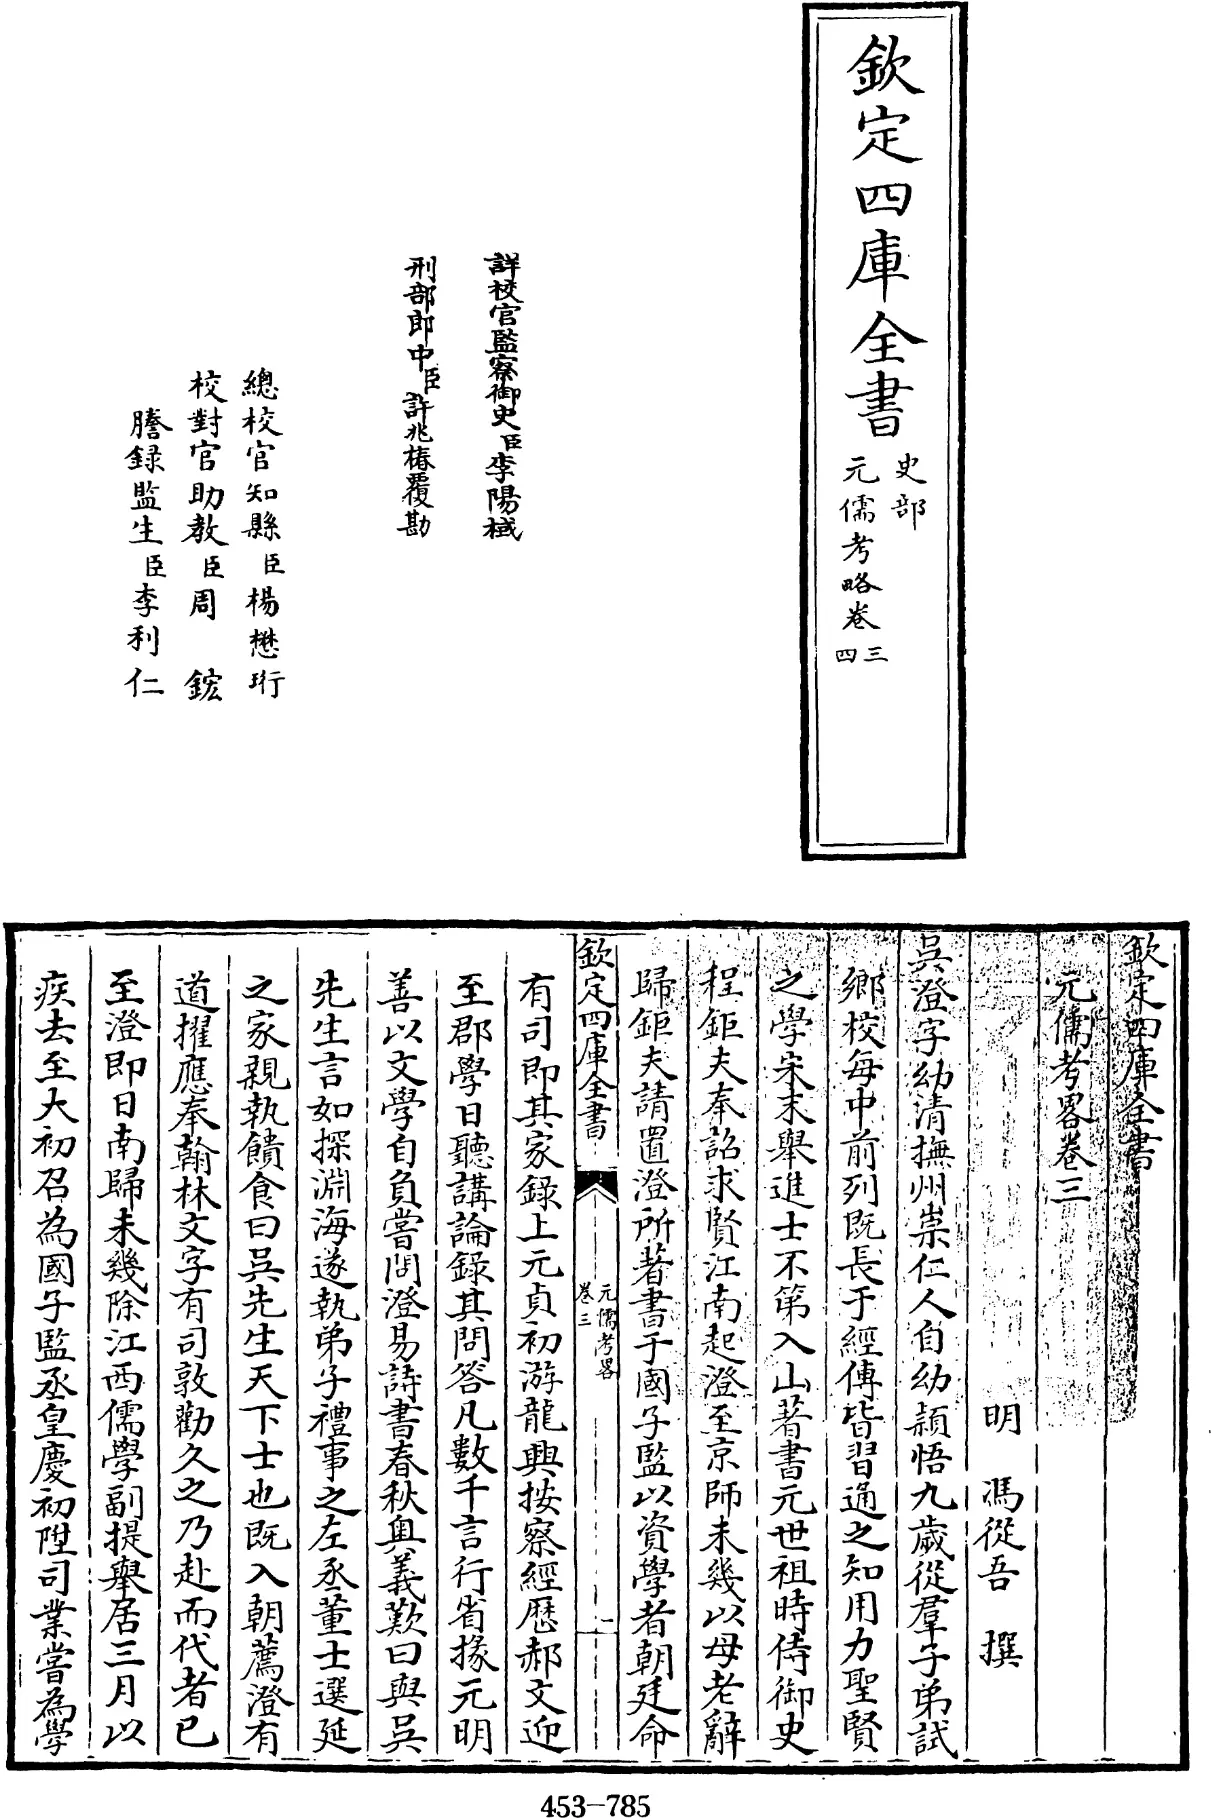 欽定四庫全書
史部
元儒考略卷三
四
詳校官監察御史臣李陽棫
刑部郎中臣許兆椿覆勘
總校官知縣臣楊懋珩
校對官助教臣周 鋐
謄錄監生臣李利仁
欽定四庫全書
元儒考畧卷三
明 馮從吾 撰
吳澄字幼清撫州崇仁人自幼頴悟九歲從羣子弟試
鄉校每中前列既長于經傳皆習通之知用力聖賢
之學宋末舉進士不第入山著書元世祖時侍御史
程鉅夫奉詔求賢江南起澄至京師未幾以母老辭
歸鉅夫請置澄所著書于國子監以資學者朝廷命
欽定四庫全書
元儒考畧
卷三
一
有司即其家録上元貞初游龍興按察經歷郝文迎
至郡學日聽講論録其問答凡數千言行省掾元明
善以文學自負嘗問澄易詩書春秋奥義歎曰與吳
先生言如探淵海遂執弟子禮事之左丞董士選延
之家親執饋食曰吳先生天下士也既入朝薦澄有
道擢應奉翰林文字有司敦勸久之乃赴而代者已
至澄即日南歸未幾除江西儒學副提舉居三月以
疾去至大初召為國子監丞皇慶初陞司業嘗為學
453-785